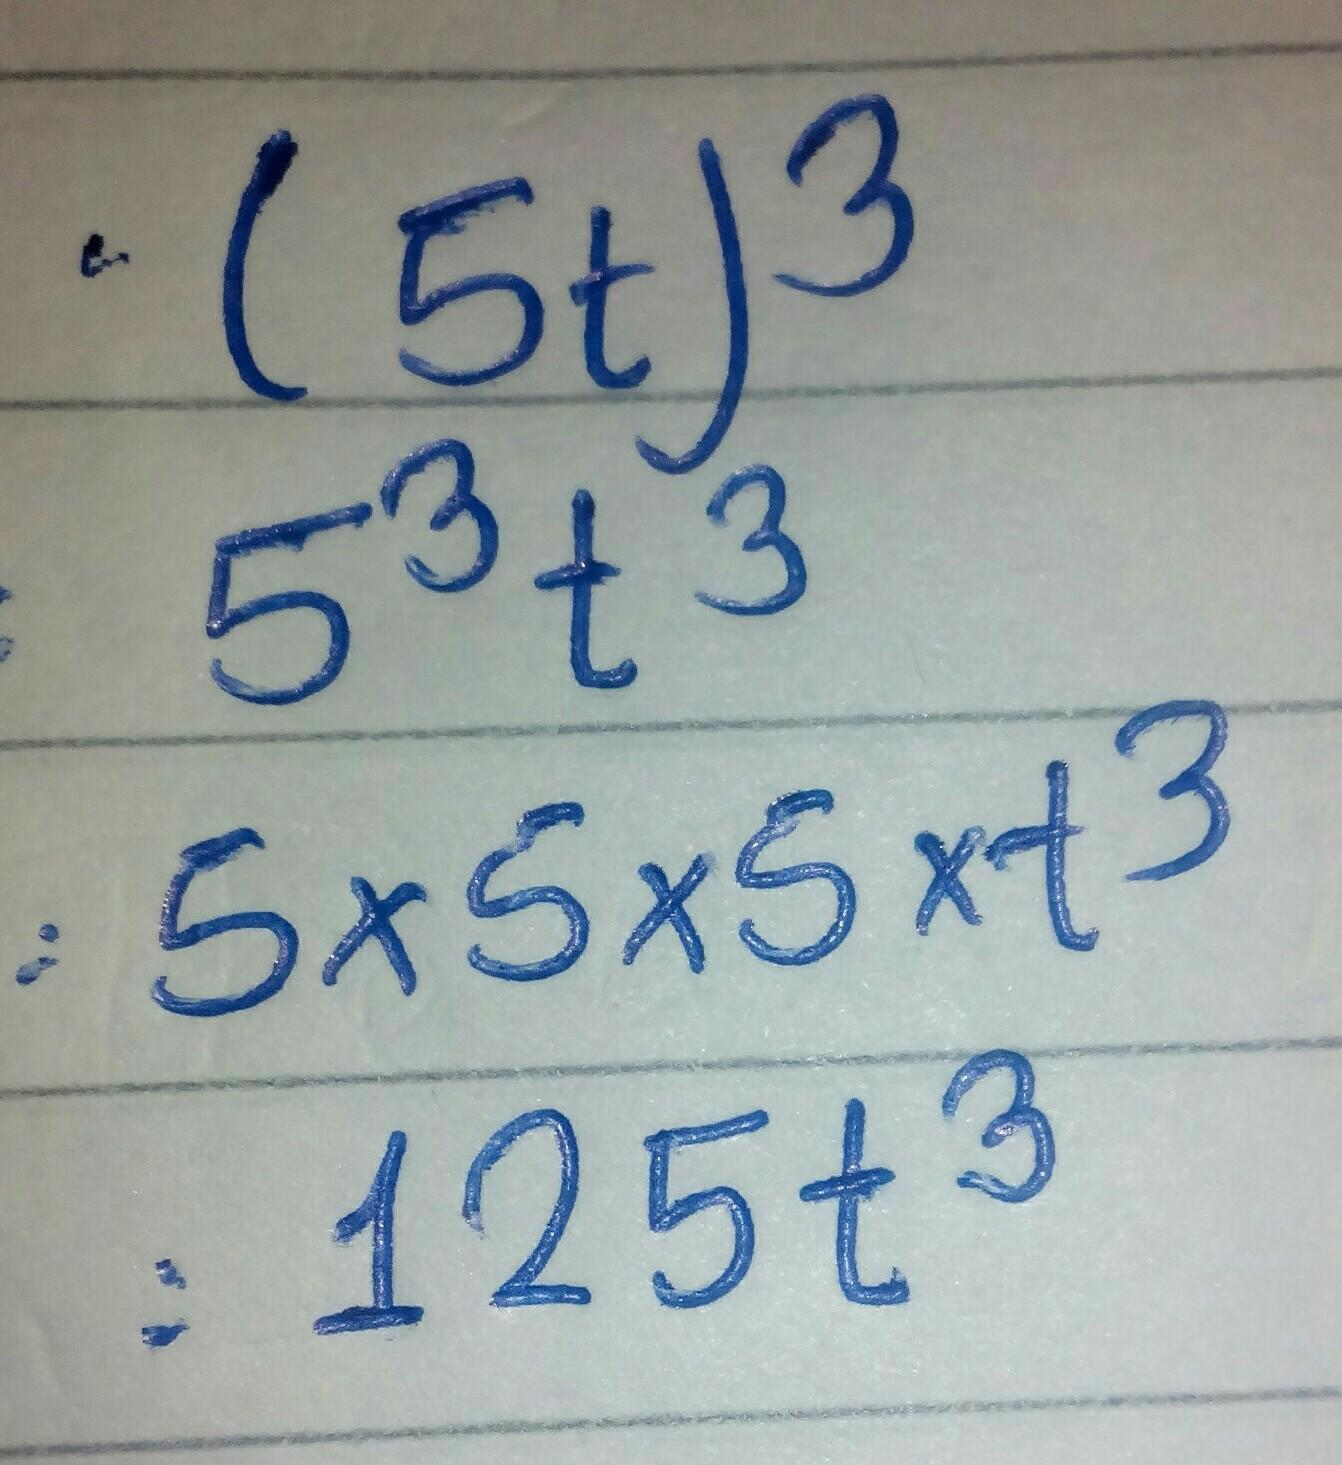 (5t)³
= 5³t³
= 5×5×5×t³
= 125t³